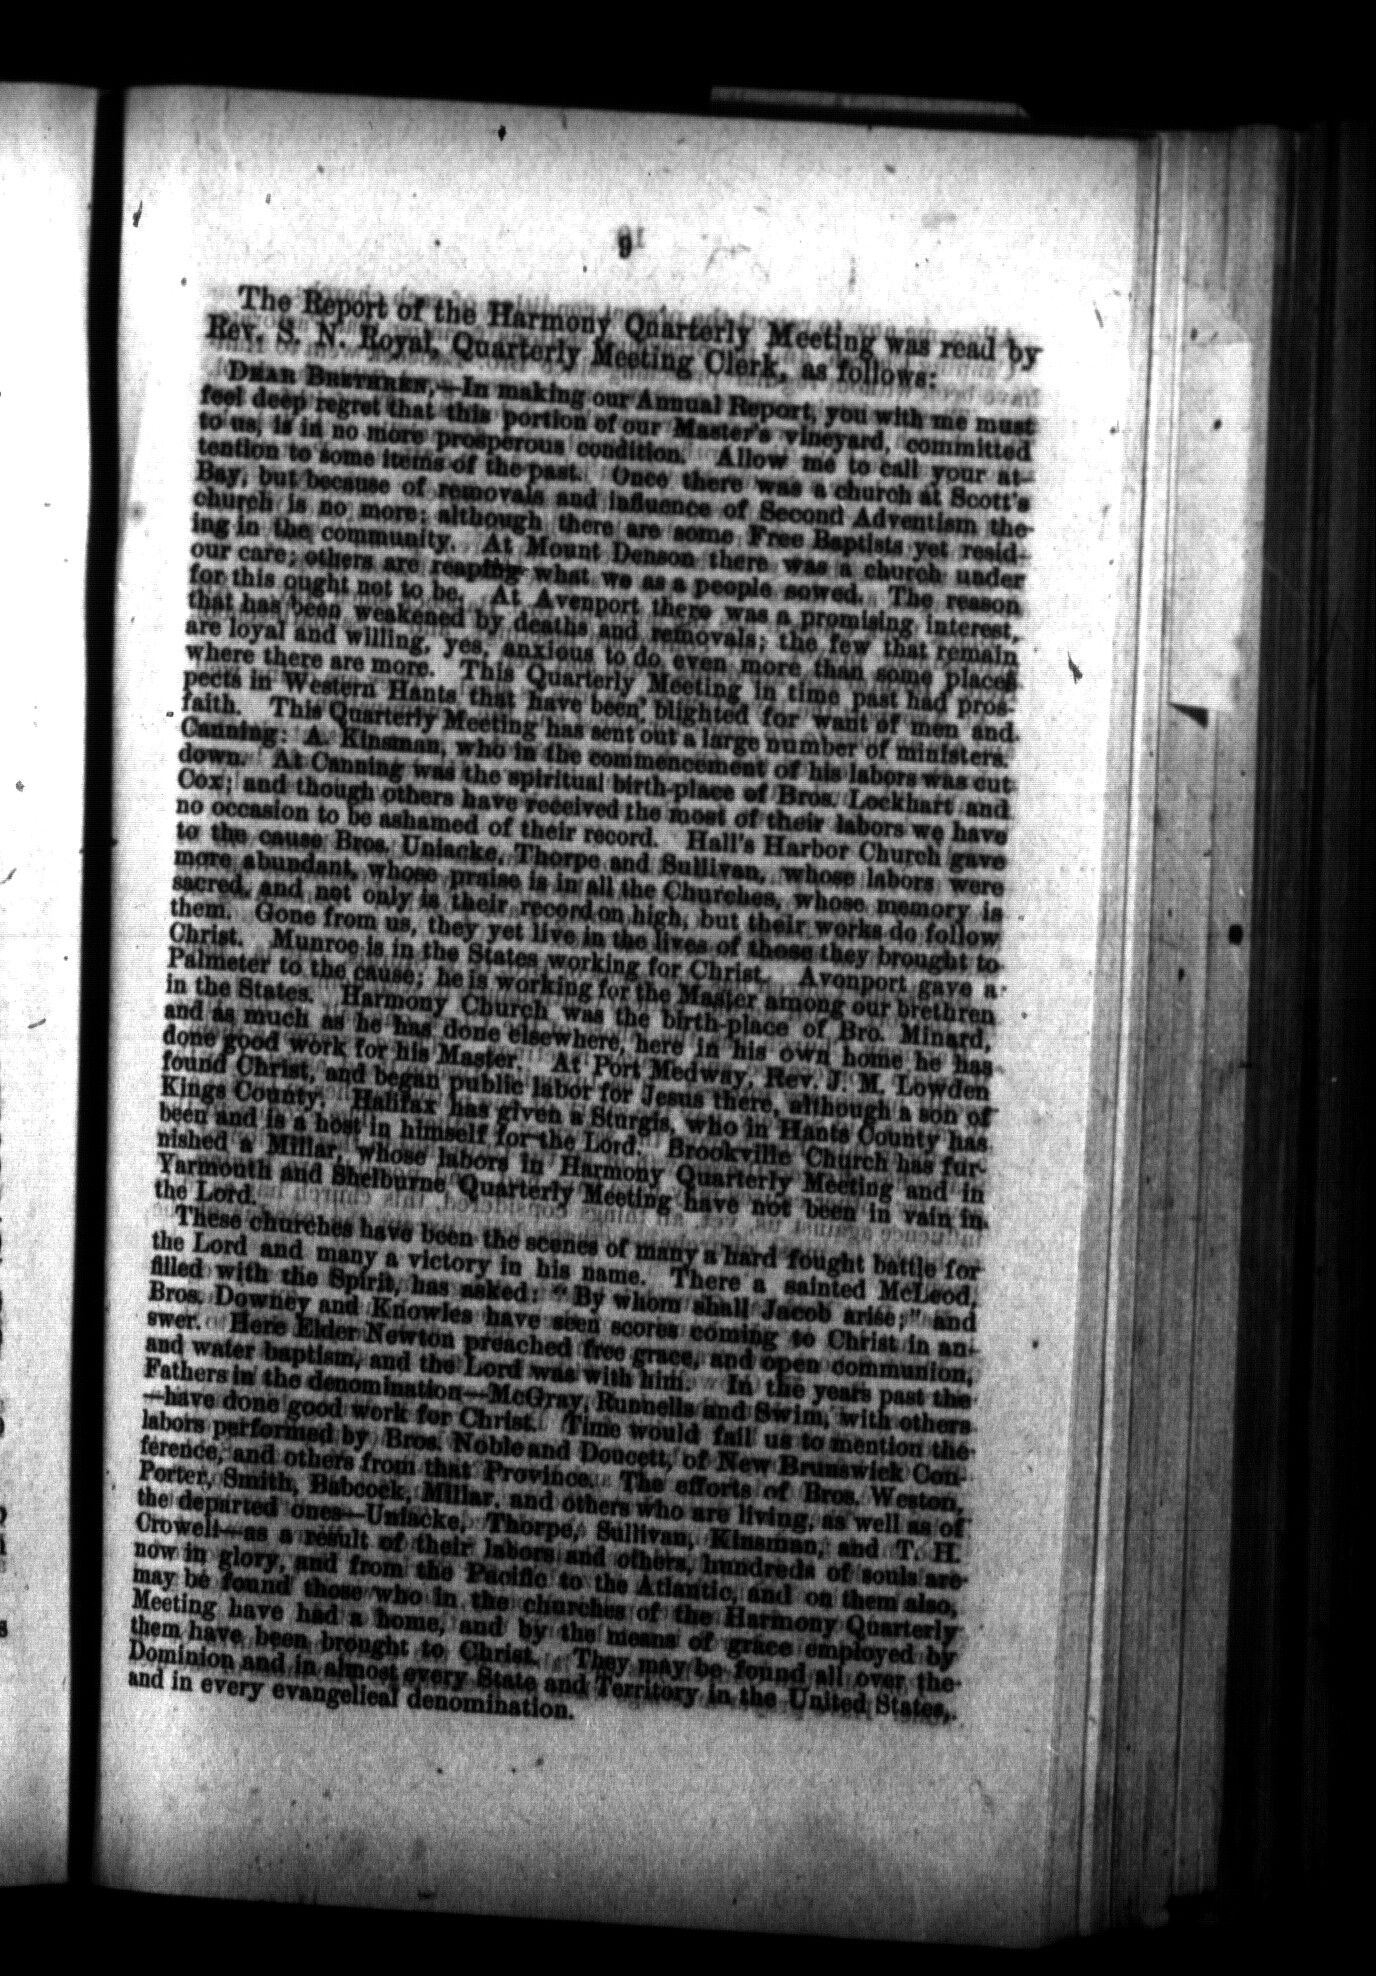 9
The Report of the Harmony Quarterly Meeting was read by
Rev. S. N. Royal, Quarterly Meeting Clerk, as follows:
DEAR BRETHREN,—In making our Annual Report, you with me must
feel deep regret that this portion of our Master's vineyard, committed
to us, is in no more prosperous condition. Allow me to call your at-
tention to some items of the past. Once there was a church at Scott's
Bay, but because of removals and influence of Second Adventism the
church is no more; although there are some Free Baptists yet resid-
ing in the community. At Mount Denson there was a church under
our care; others are reaping what we as a people sowed. The reason
for this ought not to be. At Avenport there was a promising interest,
that has been weakened by deaths and removals; the few that remain
are loyal and willing, yes, anxious to do even more than some places
where there are more. This Quarterly Meeting in time past had pros-
pects in Western Hants that have been blighted for want of men and
faith. This Quarterly Meeting has sent out a large number of ministers.
Canning: A. Kinsman, who in the commencement of his labors was cut
down. At Canning was the spiritual birth-place of Bros. Lockhart and
Cox; and though others have received the most of their labors we have
no occasion to be ashamed of their record. Hall's Harbor Church gave
to the cause Bros. Uniacke, Thorpe and Sullivan, whose labors were
more abundant, whose praise is in all the Churches, whose memory is
sacred, and not only is their record on high, but their works do follow
them. Gone from us, they yet live in the lives of those they brought to
Christ. Munroe is in the States working for Christ. Avonport gave a
Palmeter to the cause; he is working for the Master among our brethren
in the States. Harmony Church was the birth-place of Bro. Minard,
and as much as he has done elsewhere, here in his own home he has
done good work for his Master. At Port Medway, Rev. J. M. Lowden
found Christ, and began public labor for Jesus there, although a son of
Kings County. Halifax has given a Sturgis, who in Hants County has
been and is a host in himself for the Lord. Brookville Church has fur-
nished a Millar, whose labors in Harmony Quarterly Meeting and in
Yarmouth and Shelburne Quarterly Meeting have not been in vain in
the Lord.
These churches have been the scenes of many a hard fought battle for
the Lord and many a victory in his name. There a sainted McLeod,
filled with the Spirit, has asked: "By whom shall Jacob arise;" and
Bros. Downey and Knowles have seen scores coming to Christ in an-
swer. Here Elder Newton preached free grace, and open communion,
and water baptism, and the Lord was with him. In the years past the
Fathers in the denomination—McGray, Runnells and Swim, with others
—have done good work for Christ. Time would fail us to mention the
labors performed by Bros. Noble and Doucett, of New Brunswick Con-
ference, and others from that Province. The efforts of Bros. Weston,
Porter, Smith, Babcock, Millar, and others who are living, as well as of
the departed ones—Uniacke, Thorpe, Sullivan, Kinsman, and T. H.
Crowell—as a result of their labors and others, hundreds of souls are
now in glory, and from the Pacific to the Atlantic, and on them also,
may be found those who in the churches of the Harmony Quarterly
Meeting have had a home, and by the means of grace employed by
them have been brought to Christ. They may be found all over the
Dominion and in almost every State and Territory in the United States,
and in every evangelical denomination.